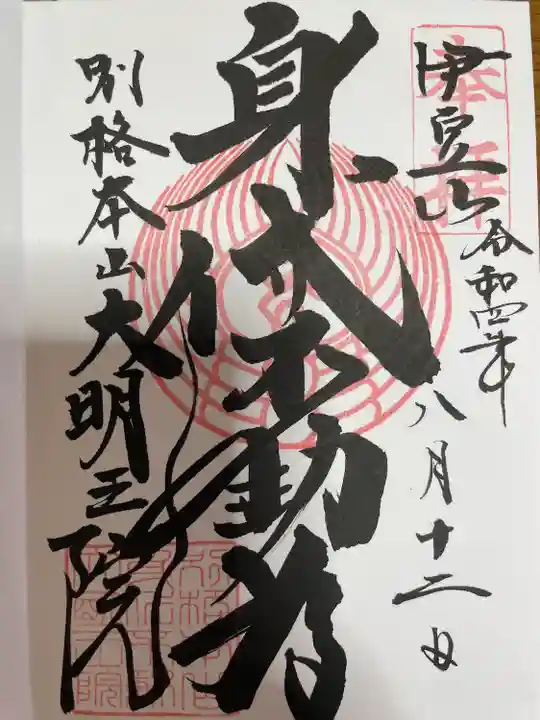 奉拝
伊豆山 令和四年
八月十二日
身代不動尊
別格本山大明王院